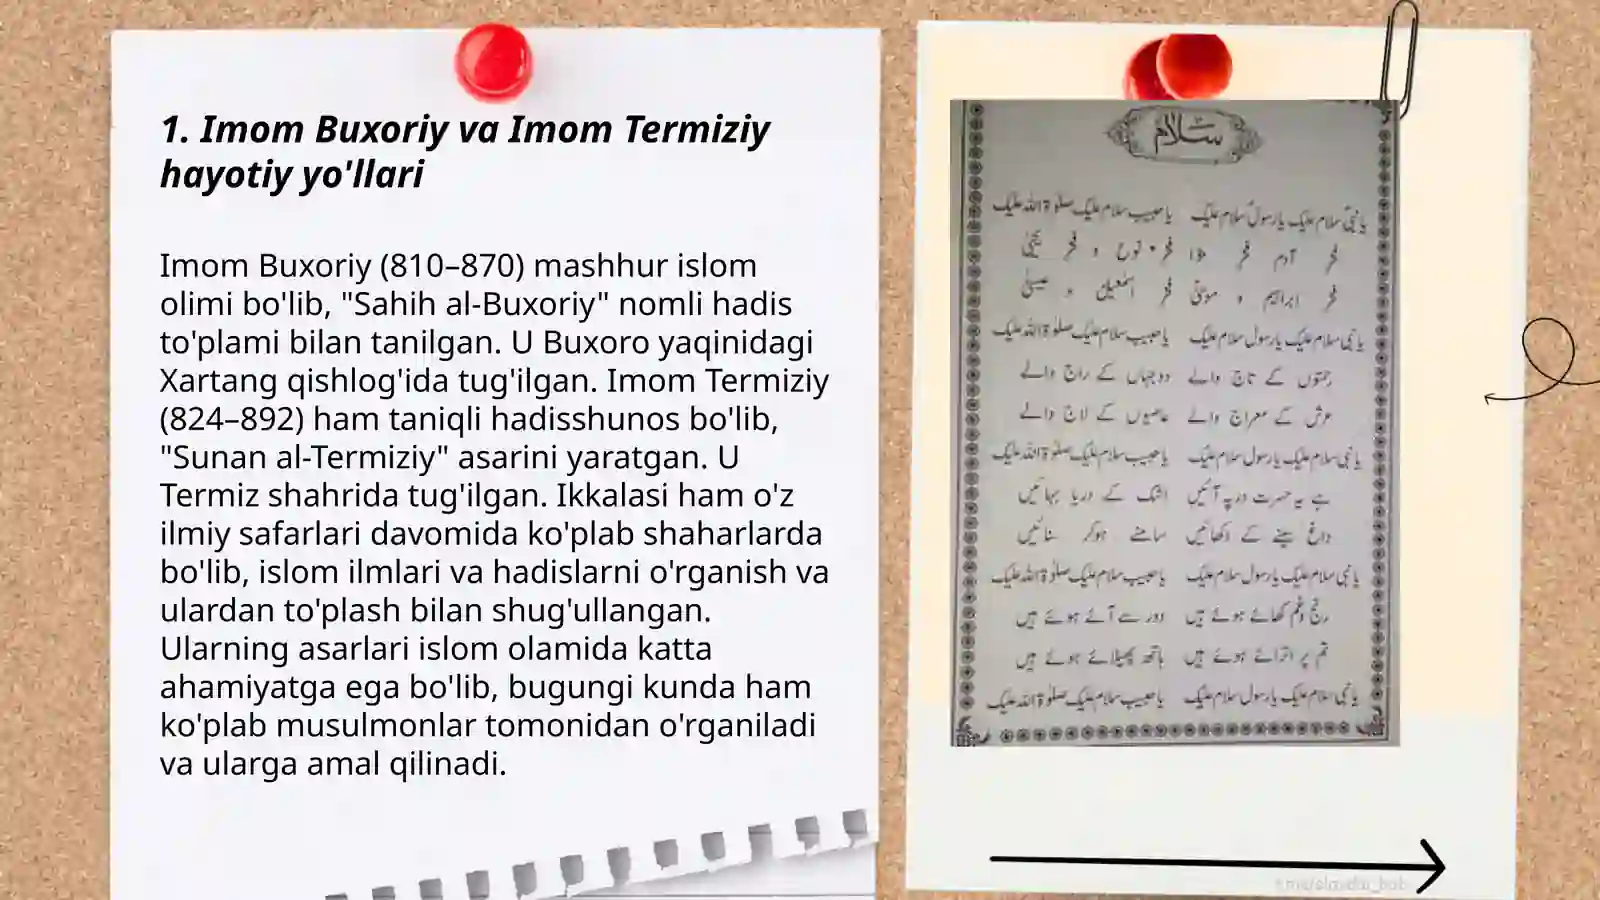 1. Imom Buxoriy va Imom Termiziy
hayotiy yo'llari
Imom Buxoriy (810–870) mashhur islom
olimi bo'lib, "Sahih al-Buxoriy" nomli hadis
to'plami bilan tanilgan. U Buxoro yaqinidagi
Xartang qishlog'ida tug'ilgan. Imom Termiziy
(824–892) ham taniqli hadisshunos bo'lib,
"Sunan al-Termiziy" asarini yaratgan. U
Termiz shahrida tug'ilgan. Ikkalasi ham o'z
ilmiy safarlari davomida ko'plab shaharlarda
bo'lib, islom ilmlari va hadislarni o'rganish va
ulardan to'plash bilan shug'ullangan.
Ularning asarlari islom olamida katta
ahamiyatga ega bo'lib, bugungi kunda ham
ko'plab musulmonlar tomonidan o'rganiladi
va ularga amal qilinadi.
سلام
یا نبی سلام علیک یا رسول سلام علیک یا حبیب سلام علیک صلوٰة اللہ علیک
فخر آدم فخر حوا فخر نوح و فخر یحییٰ
فخر ابراہیم و موسیٰ فخر اسمٰعیل و عیسیٰ
یا نبی سلام علیک یا رسول سلام علیک یا حبیب سلام علیک صلوٰة اللہ علیک
رحمتوں کے تاج والے دو جہاں کے راج والے
عرش کے معراج والے عاصیوں کے لاج والے
یا نبی سلام علیک یا رسول سلام علیک یا حبیب سلام علیک صلوٰة اللہ علیک
ہے یہ حسرت در پہ آئیں اشک کے دریا بہائیں
داغ سینے کے دکھائیں سامنے ہوکر سنائیں
یا نبی سلام علیک یا رسول سلام علیک یا حبیب سلام علیک صلوٰة اللہ علیک
رنج و غم کھائے ہوئے ہیں دور سے آئے ہوئے ہیں
تم پر اترائے ہوئے ہیں ہاتھ پھیلائے ہوئے ہیں
یا نبی سلام علیک یا رسول سلام علیک یا حبیب سلام علیک صلوٰة اللہ علیک